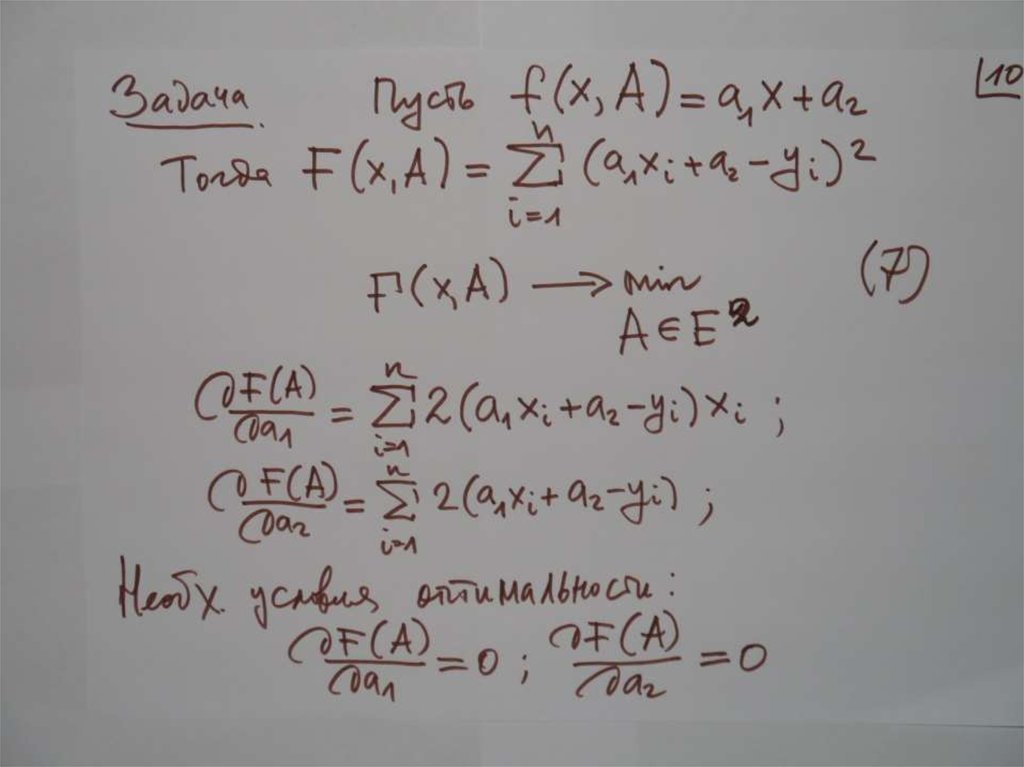 Задача Пусть f(x, A) = a₁x + a₂ 10
Тогда F(x, A) = ∑ᵢ₌₁ⁿ (a₁xᵢ + a₂ - yᵢ)²
F(x, A) → min (7)
A ∈ E²
∂F(A)/∂a₁ = ∑ᵢ₌₁ⁿ 2(a₁xᵢ + a₂ - yᵢ) xᵢ ;
∂F(A)/∂a₂ = ∑ᵢ₌₁ⁿ 2(a₁xᵢ + a₂ - yᵢ) ;
Необх. условия оптимальности:
∂F(A)/∂a₁ = 0 ; ∂F(A)/∂a₂ = 0